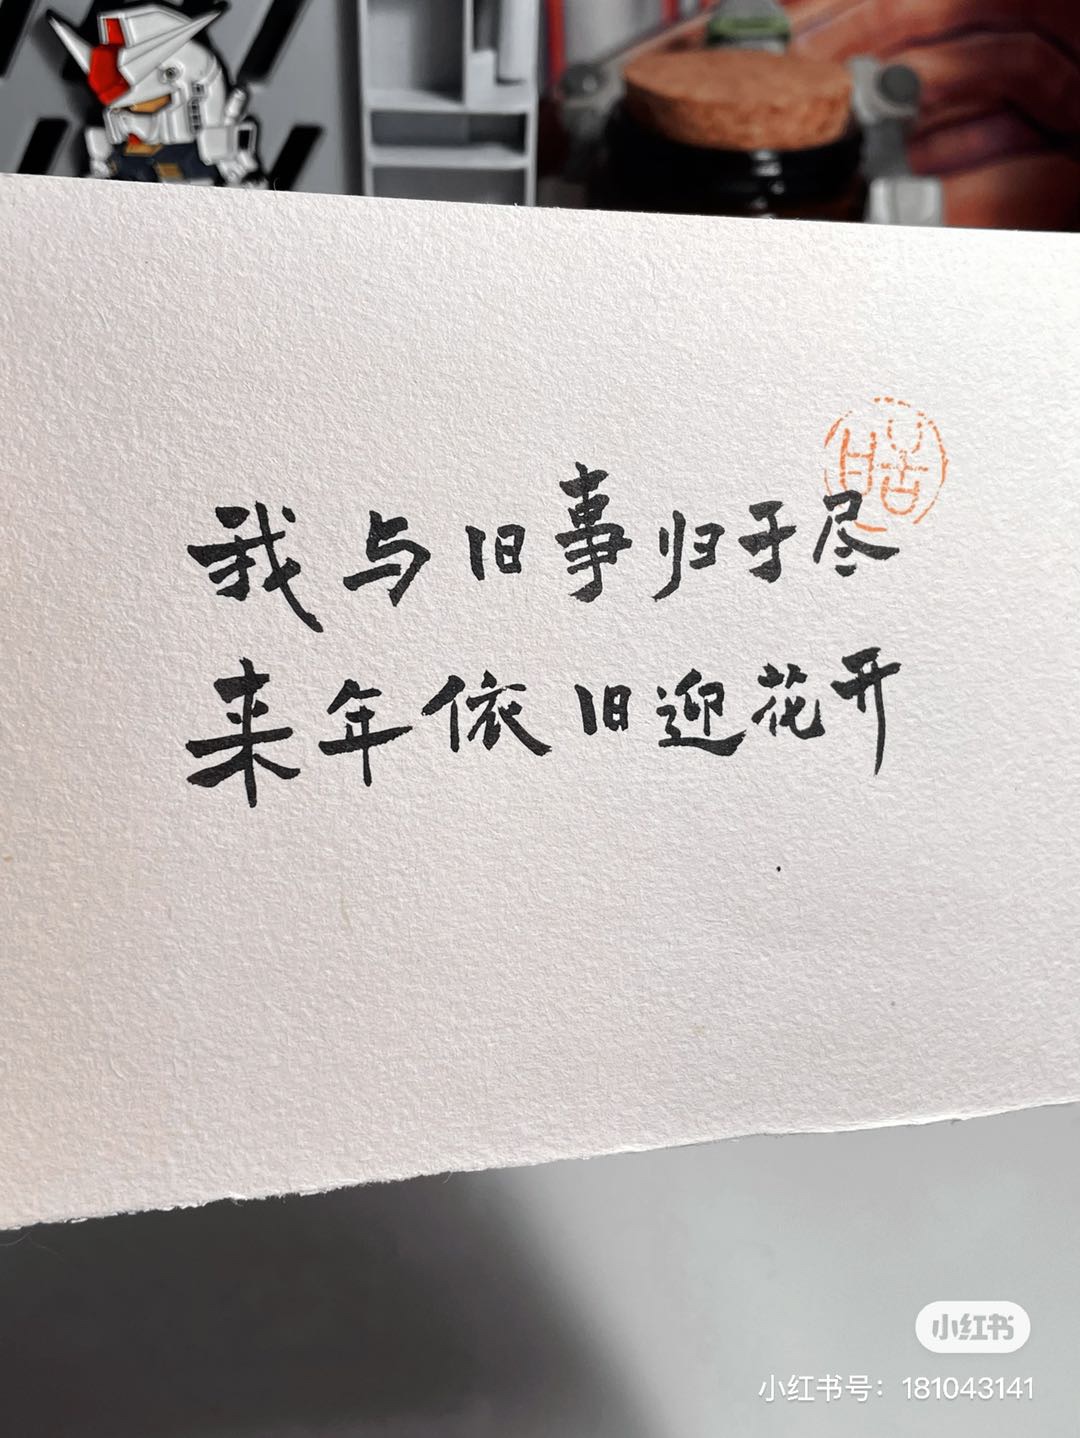 我与旧事归于尽
来年依旧迎花开
小红书
小红书号：181043141